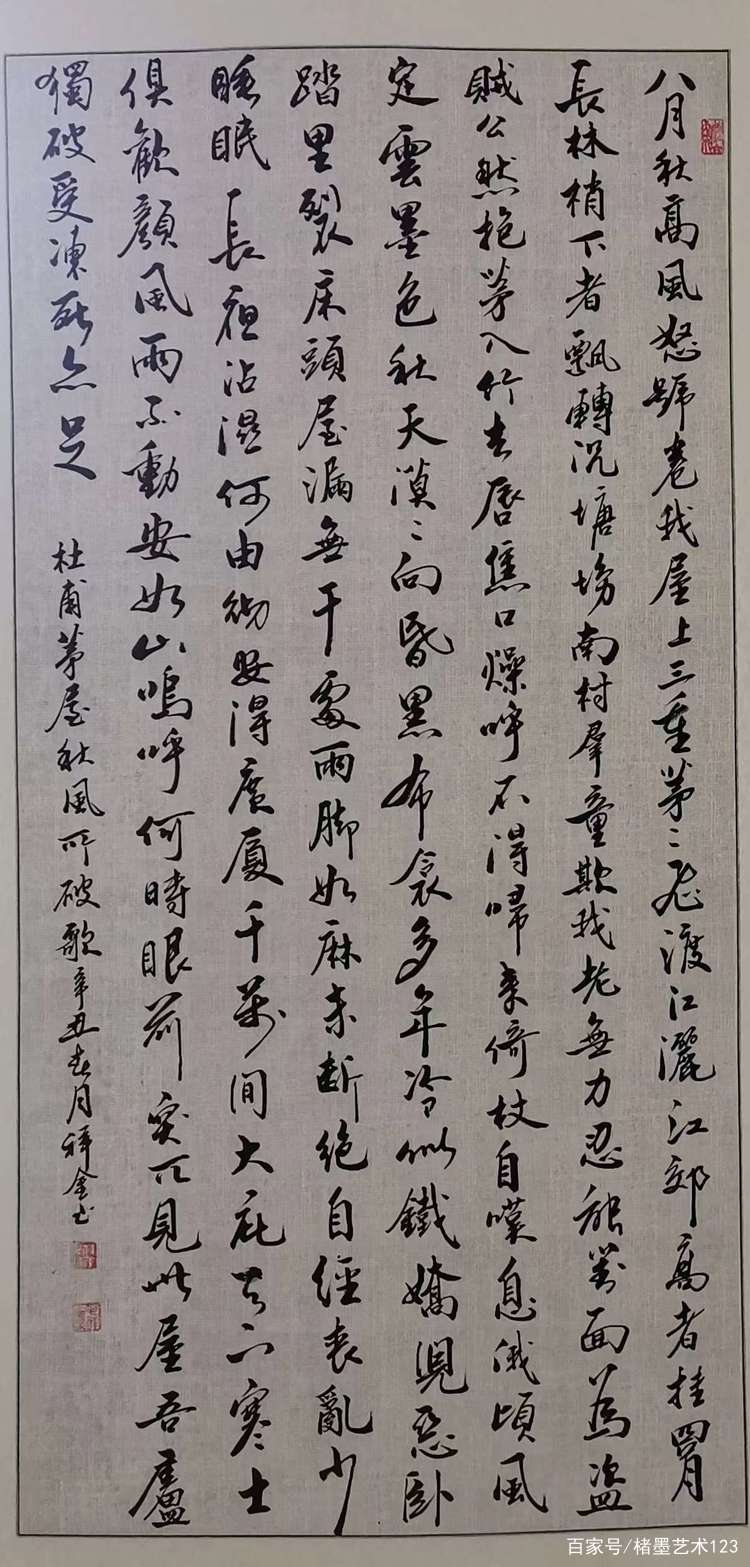 八月秋高風怒號卷我屋上三重茅〻飛渡江灑江郊高者挂罥
長林梢下者飄轉沉塘坳南村羣童欺我老無力忍能對面為盜
賊公然抱茅入竹去唇焦口燥呼不得歸來倚杖自嘆息俄頃風
定雲墨色秋天漠〻向昏黑布衾多年冷似鐵嬌兒惡卧
踏里裂床頭屋漏無干處雨脚如麻未斷絕自經喪亂少
睡眠長夜沾湿何由徹安得廣廈千萬間大庇天下寒士
俱歡顏風雨不動安如山嗚呼何時眼前突兀見此屋吾廬
獨破受凍死亦足
杜甫茅屋秋風所破歌辛丑春月祥金书
百家号/楮墨艺术123